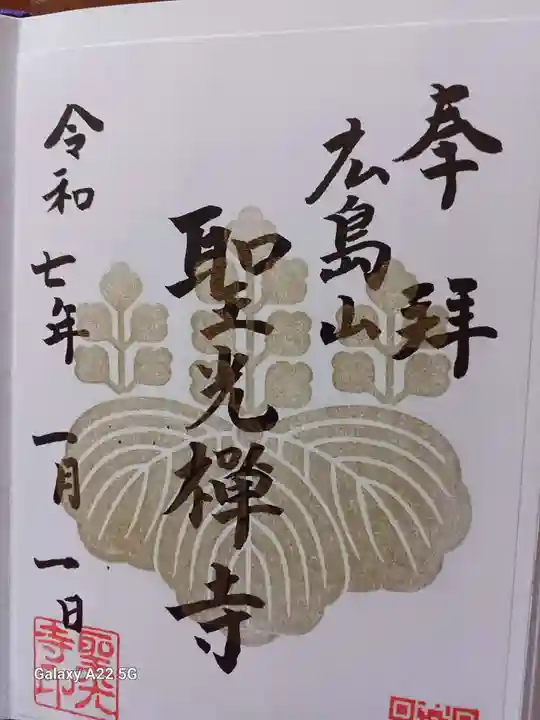 奉拝
広島山
聖光禅寺
令和七年一月一日
聖光寺印
Galaxy A22 5G